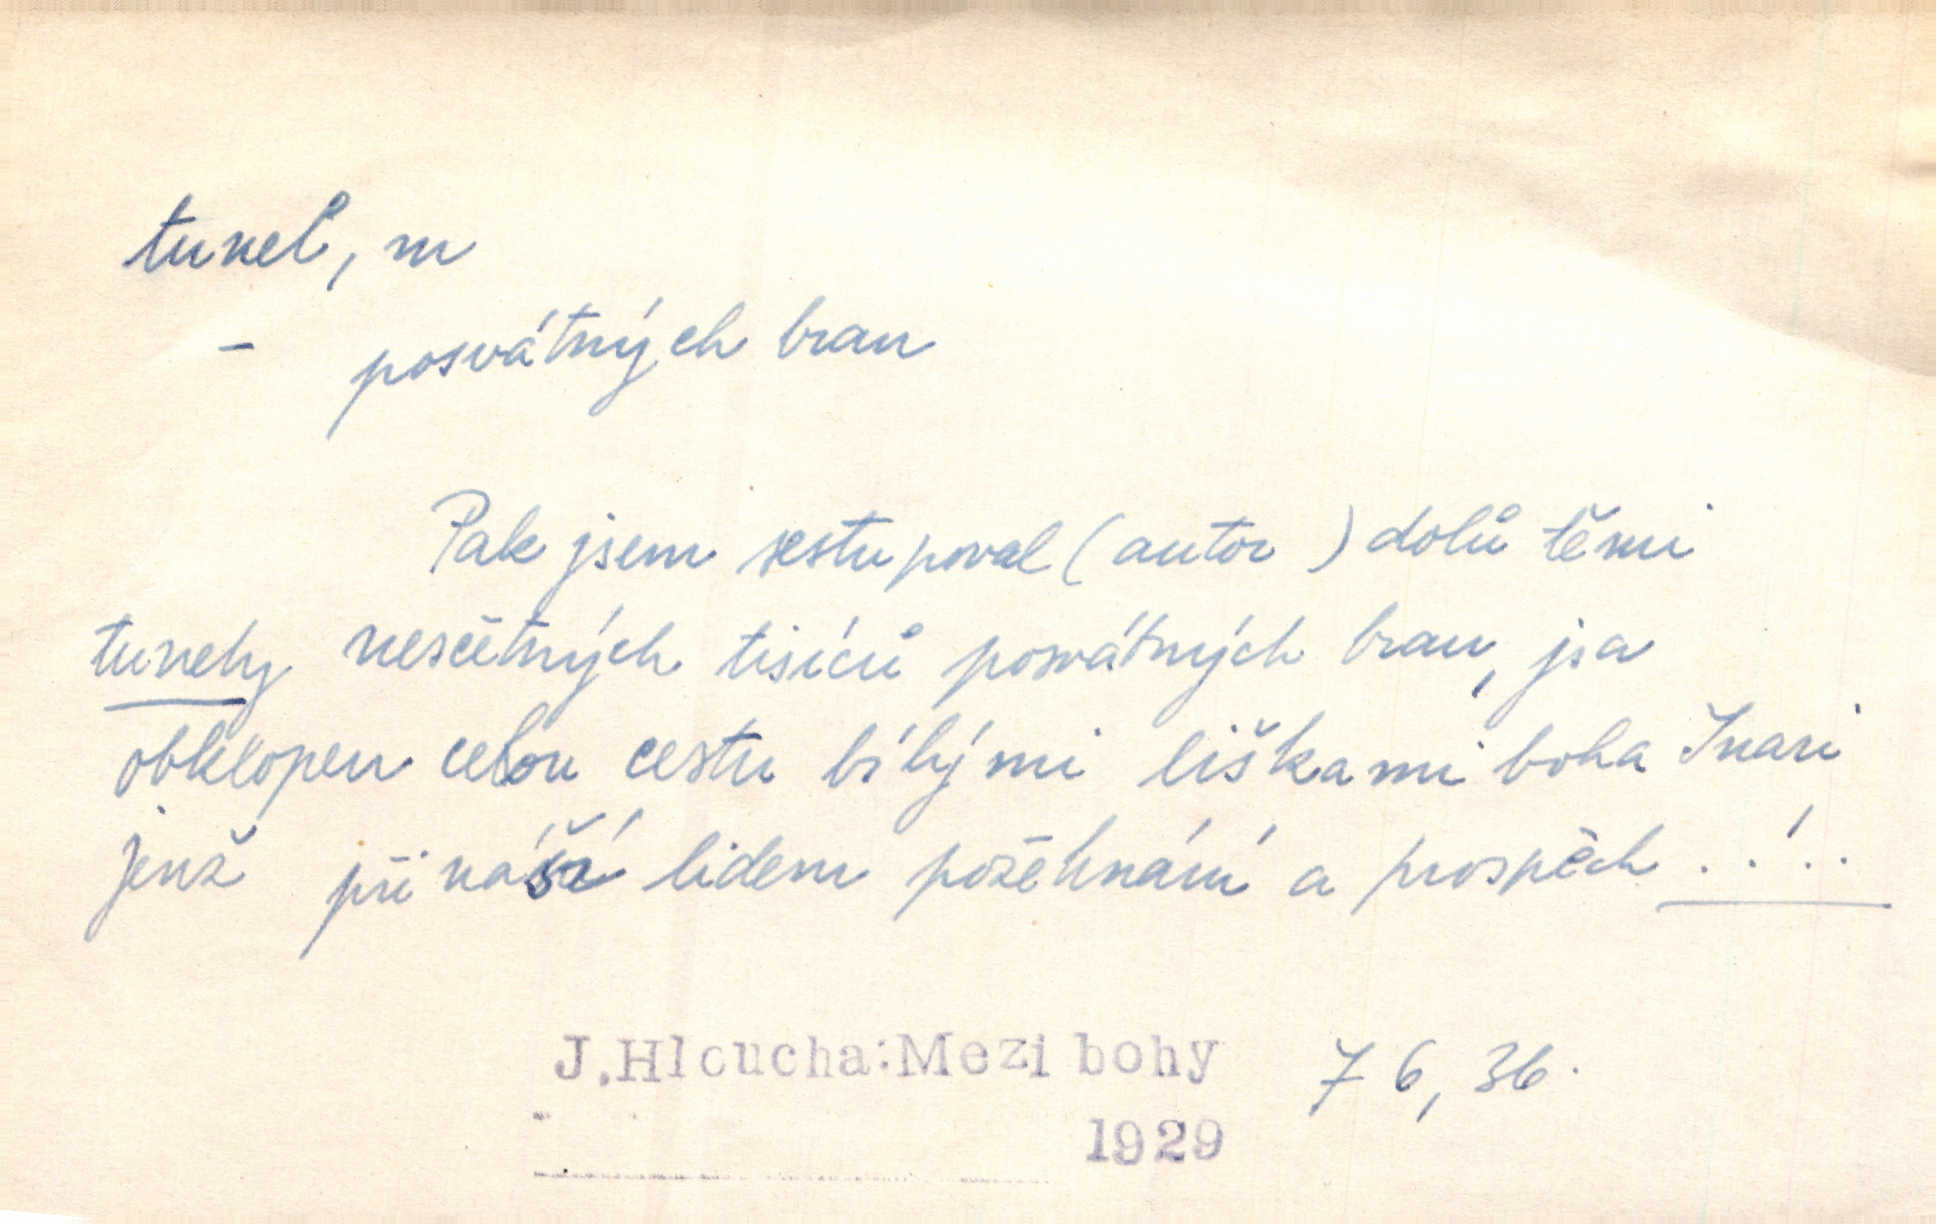 tunel, m
- posvátných bran
Pak jsem sestupoval (autor) dolů těmi
tunely nesčetných tisíců posvátných bran, jsa
obklopen celou cestu bílými liškami boha Inari
jenž přináší lidem požehnání a prospěch ....
J.Hloucha:Mezi bohy 76, 36.
1929